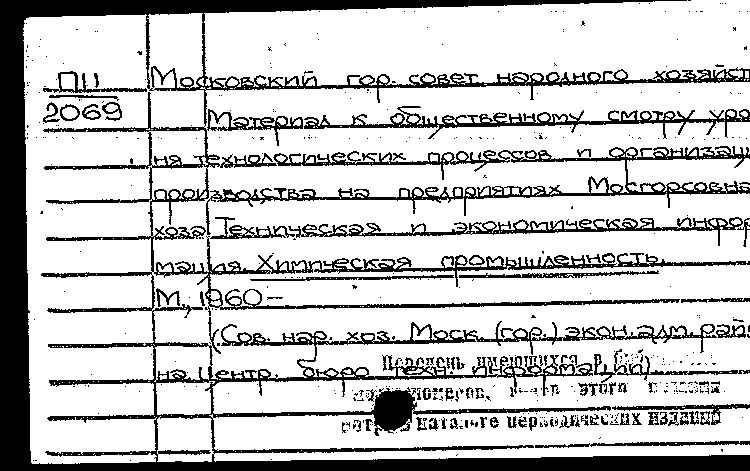 ПII
2069
Московский гор. совет народного хозяйст
Материал к общественному смотру уро
ня технологических процессов и организаци
производства на предприятиях Мосгорсовна
хоза Техническая и экономическая инфор
мация. Химическая промышленность.
М., 1960 –
(Сов. нар. хоз. Моск. (гор.) экон. адм. рай
на Центр. бюро техн. информации)
Перечень имеющихся в
номеров, этого издания
катал-ге периодических изданий